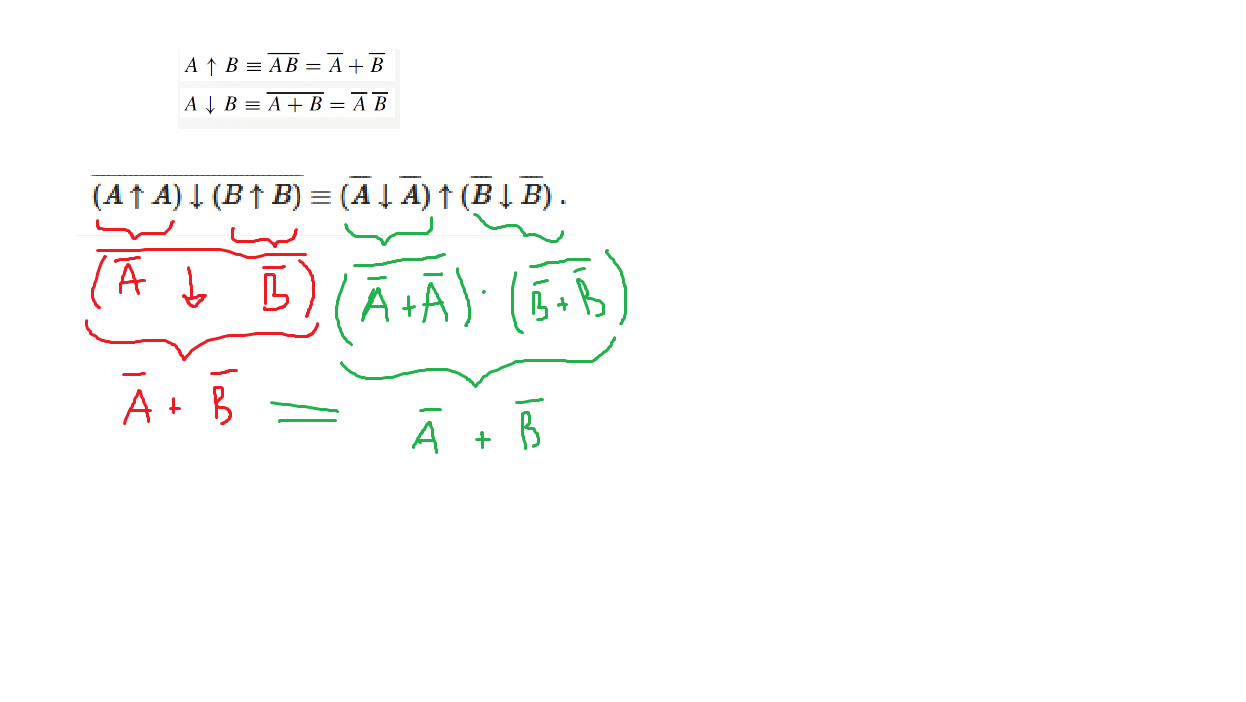 A ↑ B ≡ A̅B̅ = A̅ + B̅
A ↓ B ≡ A̅ ̅+̅ ̅B̅ = A̅ B̅
(̅A̅ ̅↑̅ ̅A̅)̅ ̅↓̅ ̅(̅B̅ ̅↑̅ ̅B̅)̅ ≡ (A̅ ↓ A̅) ↑ (B̅ ↓ B̅) .
(A̅ ↓ B̅) (A̅ + A̅) · (B̅ + B̅)
A̅ + B̅ = A̅ + B̅